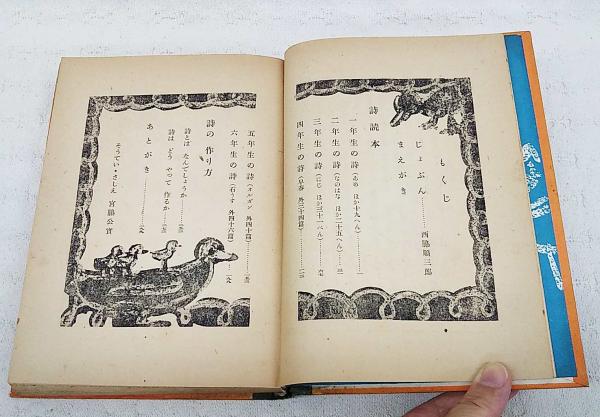 もくじ
じょぶん………西脇順三郎
まえがき
詩読本
一年生の詩(あめ ほか十九へん)………一
二年生の詩(なのはな ほか二十五へん)……三一
三年生の詩(にじ ほか三十一ぺん)……
四年生の詩(早春 外三十四篇)………
五年生の詩(オルガン 外四十篇)………
六年生の詩(石うす 外四十六篇)………
詩の作り方
詩とは なんでしょうか………
詩は どう やって 作るか………
あとがき………
そうてい・さしえ 宮脇公實